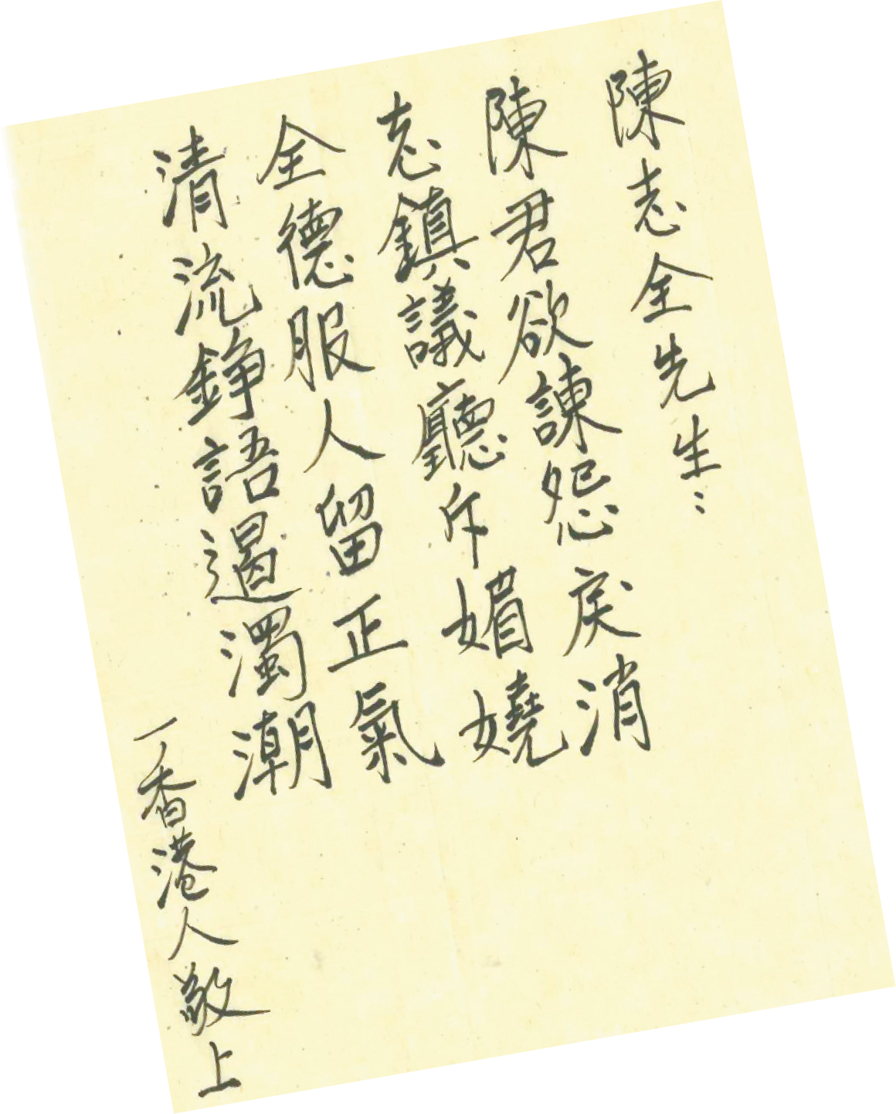 陳志全先生：
陳君欲諫怨戾消
志鎮議廳斥媚嬈
全德服人留正氣
清流錚語遏濁潮
一香港人敬上